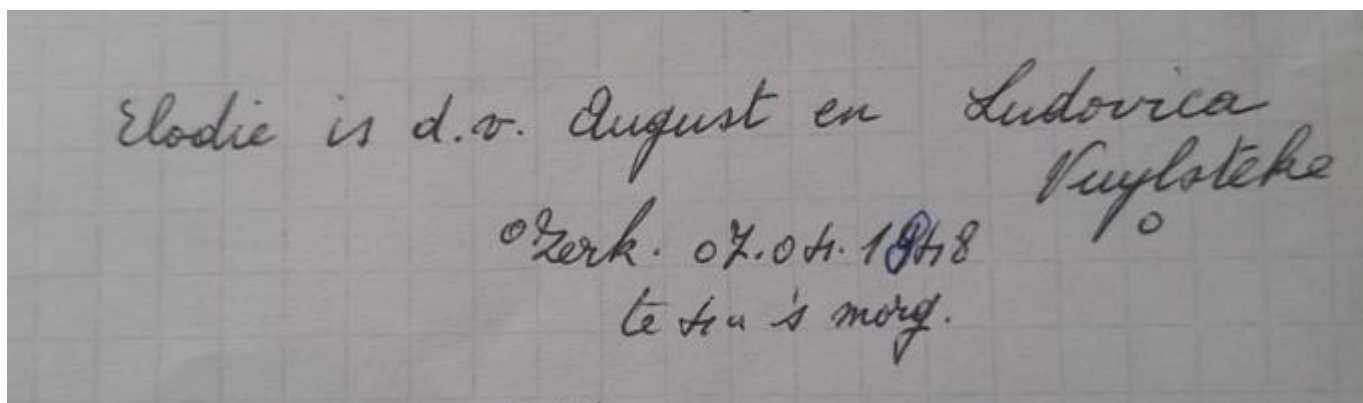 Elodie is d.v. August en Ludovica
Vuylsteke
°Zerk. 07.04.1848
te 4u 's morg.